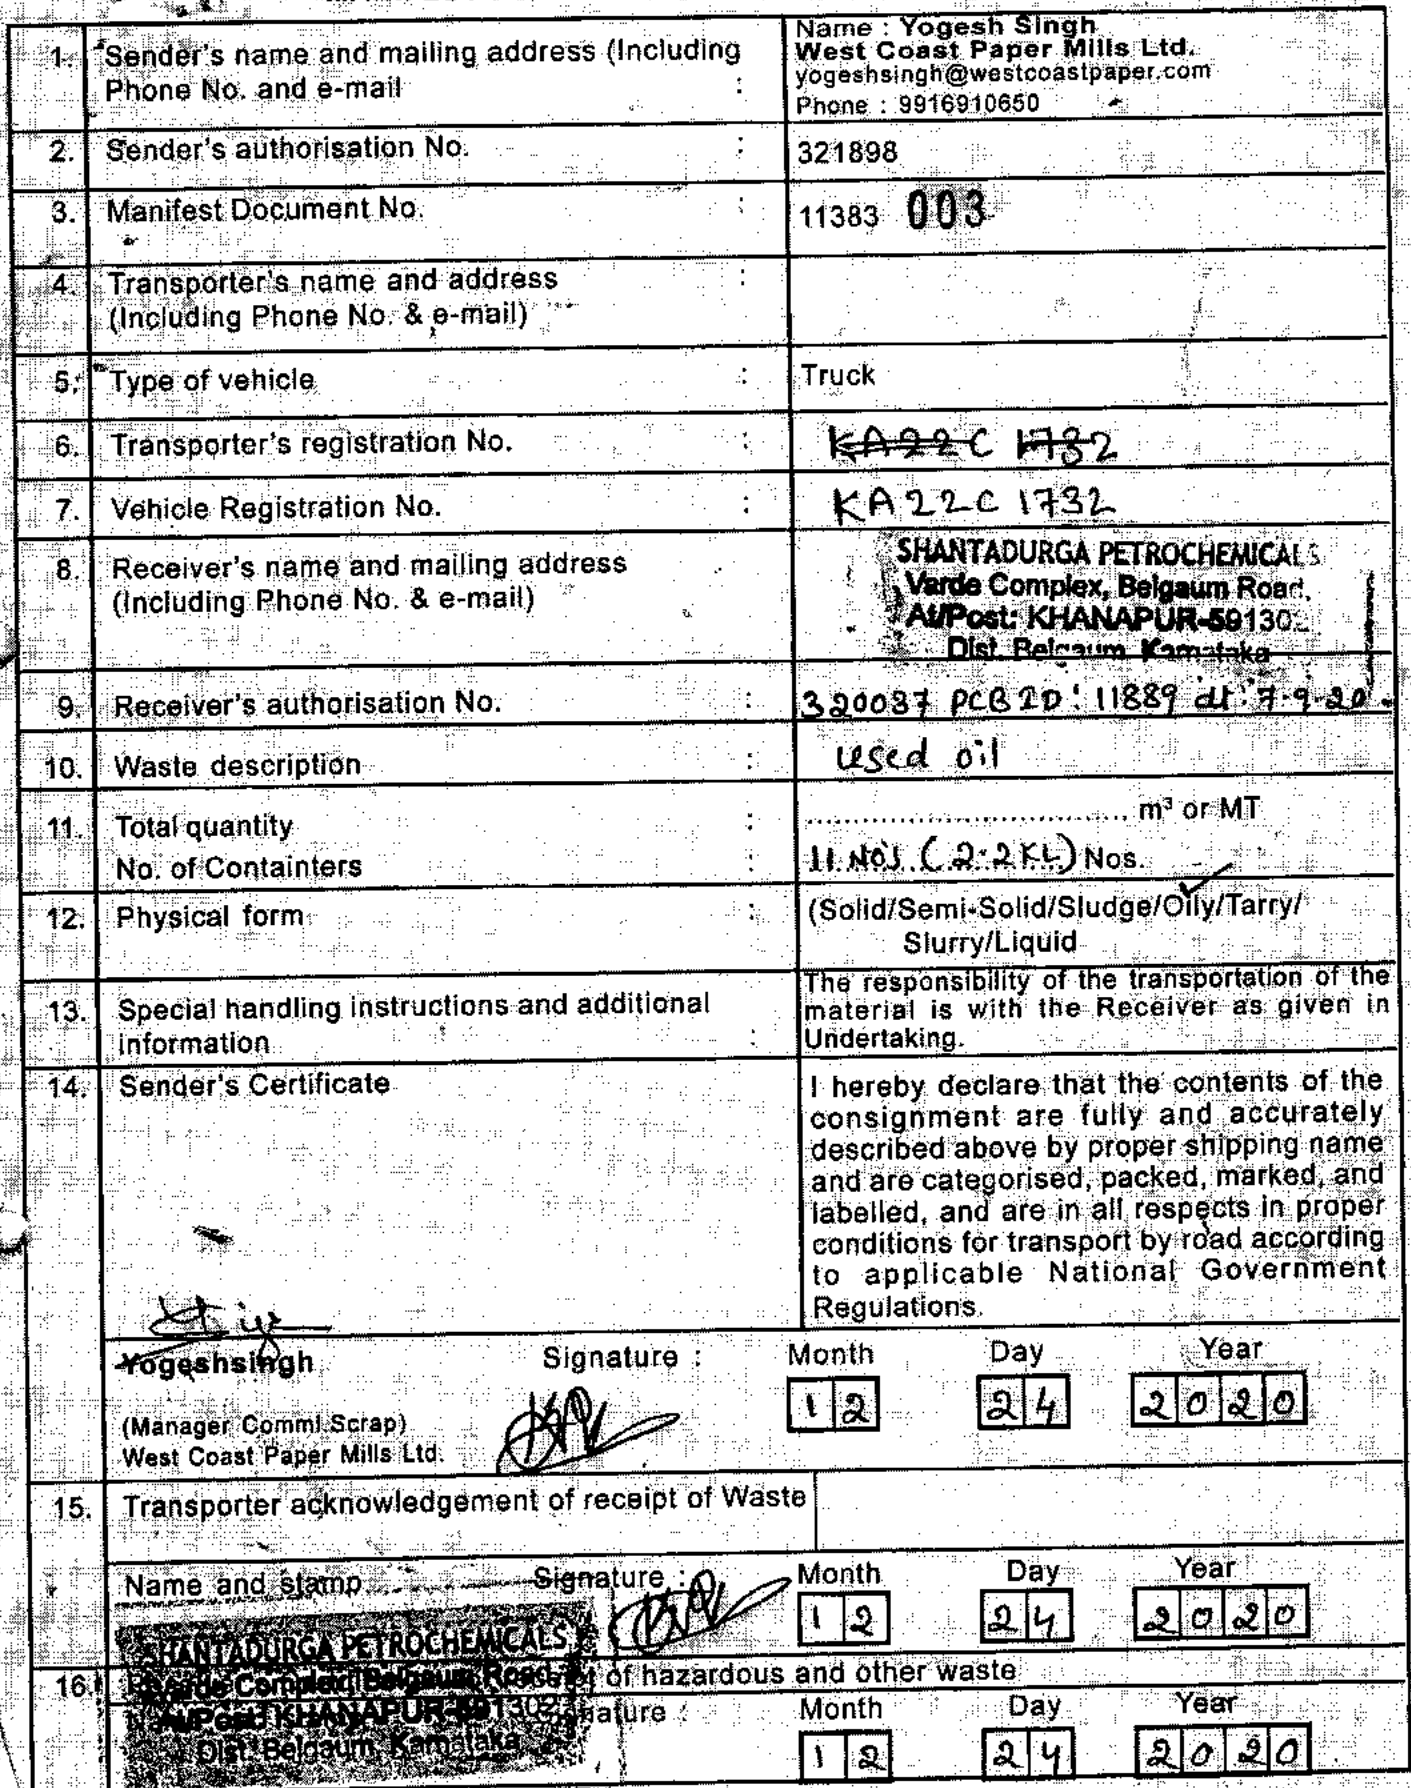 1. Sender's name and mailing address (Including
Phone No. and e-mail :
Name : Yogesh Singh
West Coast Paper Mills Ltd.
yogeshsingh@westcoastpaper.com
Phone : 9916910650
2. Sender's authorisation No. : 321898
3. Manifest Document No. : 11383 003
4. Transporter's name and address :
(Including Phone No. & e-mail)
5. Type of vehicle : Truck
6. Transporter's registration No. : KA22C 1732
7. Vehicle Registration No. : KA22C 1732
8. Receiver's name and mailing address
(Including Phone No. & e-mail)
SHANTADURGA PETROCHEMICALS
Varde Complex, Belgaum Road,
At/Post: KHANAPUR-591302
Dist. Belgaum Karnataka
9. Receiver's authorisation No. : 320087 PCB ID: 11889 dt: 7-9-20
10. Waste description : used oil
11. Total quantity : .............................. m³ or MT
No. of Containters : 11 Nos (2.2KL) Nos.
12. Physical form : (Solid/Semi-Solid/Sludge/Oily/Tarry/
Slurry/Liquid
13. Special handling instructions and additional
information :
The responsibility of the transportation of the
material is with the Receiver as given in
Undertaking.
14. Sender's Certificate
I hereby declare that the contents of the
consignment are fully and accurately
described above by proper shipping name
and are categorised, packed, marked, and
labelled, and are in all respects in proper
conditions for transport by road according
to applicable National Government
Regulations.
Yogeshsingh Signature : Month Day Year
12 24 2020
(Manager Comml.Scrap)
West Coast Paper Mills Ltd.
15. Transporter acknowledgement of receipt of Waste
Name and stamp Signature : Month Day Year
12 24 2020
SHANTADURGA PETROCHEMICALS
16. of hazardous and other waste
Varde Complex, Belgaum Road,
At/Post: KHANAPUR-591302 Signature : Month Day Year
Dist. Belgaum Karnataka 12 24 2020